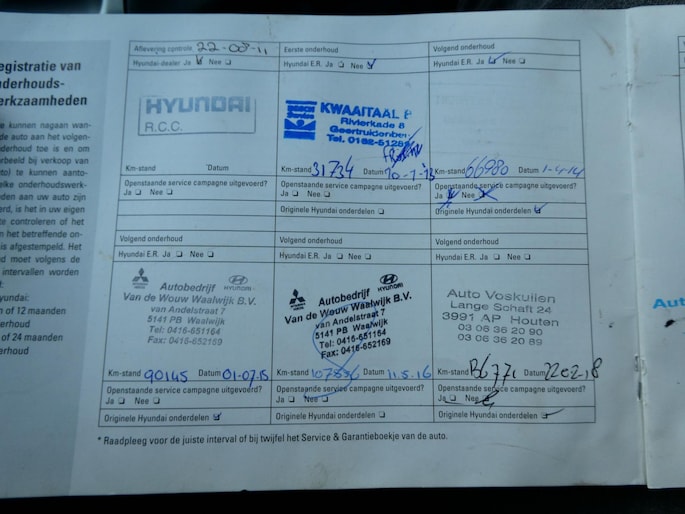 egistratie van
nderhouds-
erkzaamheden
e kunnen nagaan wan-
de auto aan het volgen-
derhoud toe is en om
orbeeld bij verkoop van
to) te kunnen aanto-
elke onderhoudswerk-
den aan uw auto zijn
erd, is het in uw eigen
te controleren of het
n het betreffende on-
is afgestempeld. Het
d moet volgens de
intervallen worden
d:
yundai:
n of 12 maanden
erhoud
n of 24 maanden
derhoud
Aflevering controle. 22-08-11
Hyundai-dealer Ja Nee
HYUNDAI
R.C.C.
Km-stand Datum
Openstaande service campagne uitgevoerd?
Ja Nee
Eerste onderhoud
Hyundai E.R. Ja Nee
Bosch
Service
KWAAITAAL B
Rivierkade 8
Geertruidenber
Tel. 0162-51258
Km-stand 31734 Datum 10-7-13
Openstaande service campagne uitgevoerd?
Ja Nee
Originele Hyundai onderdelen
Volgend onderhoud
Hyundai E.R. Ja Nee
Km-stand 66980 Datum 1-4-14
Openstaande service campagne uitgevoerd?
Ja Nee
Originele Hyundai onderdelen
Volgend onderhoud
Hyundai E.R. Ja Nee
HYUNDAI
Autobedrijf
Van de Wouw Waalwijk B.V.
van Andelstraat 7
5141 PB Waalwijk
Tel: 0416-651164
Fax: 0416-652169
Km-stand 90145 Datum 01-07-15
Openstaande service campagne uitgevoerd?
Ja Nee
Originele Hyundai onderdelen
Volgend onderhoud
Hyundai E.R. Ja Nee
HYUNDAI
Autobedrijf
Van de Wouw Waalwijk B.V.
van Andelstraat 7
5141 PB Waalwijk
Tel: 0416-651164
Fax: 0416-652169
Km-stand 107836 Datum 11.5.16
Openstaande service campagne uitgevoerd?
Ja Nee
Originele Hyundai onderdelen
Volgend onderhoud
Hyundai E.R. Ja Nee
Auto Voskuilen
Lange Schaft 24
3991 AP Houten
03 06 36 20 90
03 06 36 20 89
Km-stand Datum 22-02-18
Openstaande service campagne uitgevoerd?
Ja Nee
Originele Hyundai onderdelen
* Raadpleeg voor de juiste interval of bij twijfel het Service & Garantieboekje van de auto.